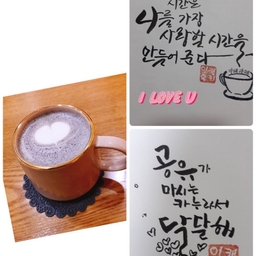 시간은
나를 가장
사랑할 시간을
만들어 준다
I LOVE U
공유가
마시는
카누라서
달달해